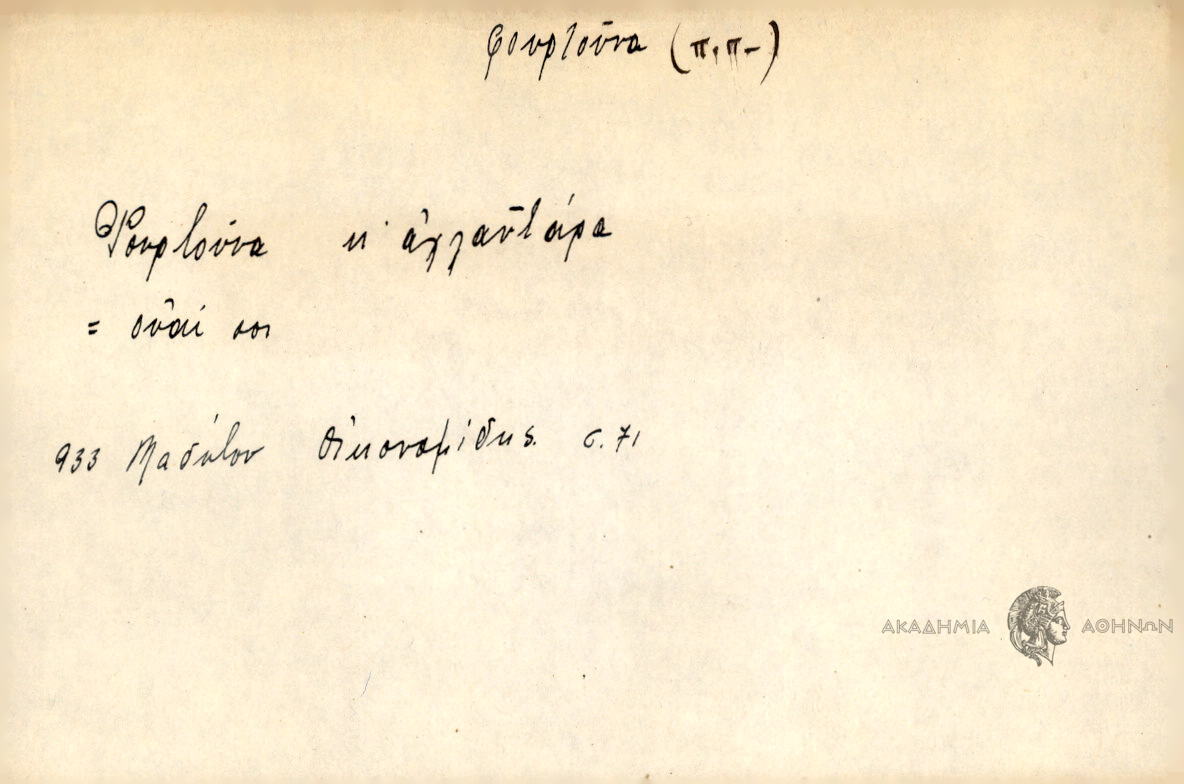 φουρτοῦνα (π.π-)
Φουρτούνα κι ἀχλαντάρα
= οὐαί σοι
933 Μαδύτου Οἰκονομίδης. σ. 71
ΑΚΑΔΗΜΙΑ ΑΘΗΝΩΝ